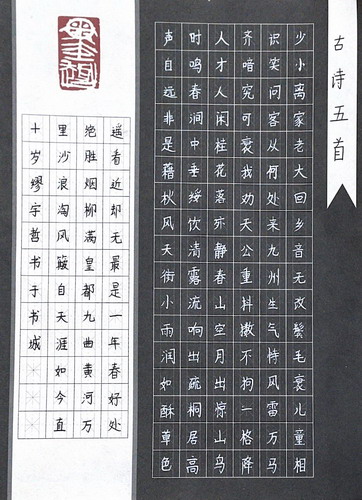 古诗五首
少小离家老大回乡音无改鬓毛衰儿童相
识笑问客从何处来九州生气恃风雷万马
齐喑究可哀我劝天公重抖擞不拘一格降
人才人闲桂花落夜静春山空月出惊山鸟
时鸣春涧中垂緌饮清露流响出疏桐居高
声自远非是藉秋风天街小雨润如酥草色
遥看近却无最是一年春好处
绝胜烟柳满皇都九曲黄河万
里沙浪淘风簸自天涯如今直
十岁缪宇哲书于书城